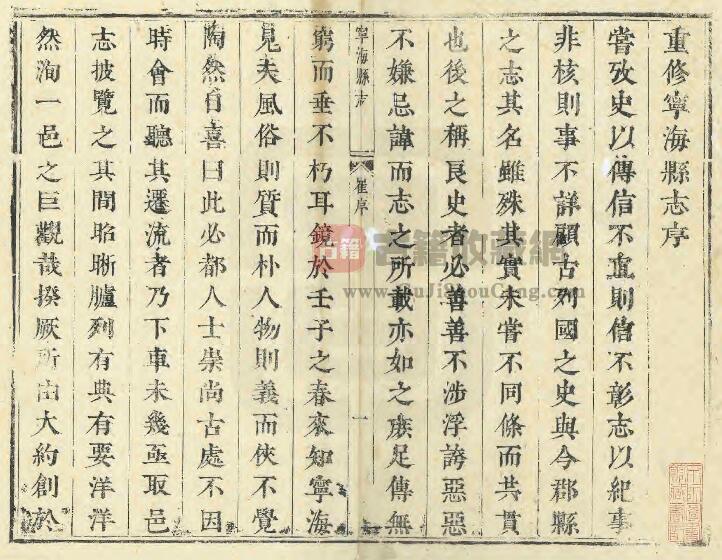 重修寧海縣志序
嘗攷史以傳信不直則信不彰志以紀事
非核則事不詳顧古列國之史與今郡縣
之志其名雖殊其實未嘗不同條而共貫
也後之稱良史者必善善不涉浮誇惡惡
不嫌忌諱而志之所載亦如之庶足傳無
寧海縣志 崔序 一
窮而垂不朽耳鏡於壬子之春來知寧海
見夫風俗則質而朴人物則義而俠不覺
陶然自喜曰此必都人士崇尚古處不因
時會而聽其遷流者乃下車未幾亟取邑
志披覽之其間昭晰臚列有典有要洋洋
然洵一邑之巨觀哉揆厥所由大約創於
古籍 古籍收藏網
www.GuJiShouCang.com